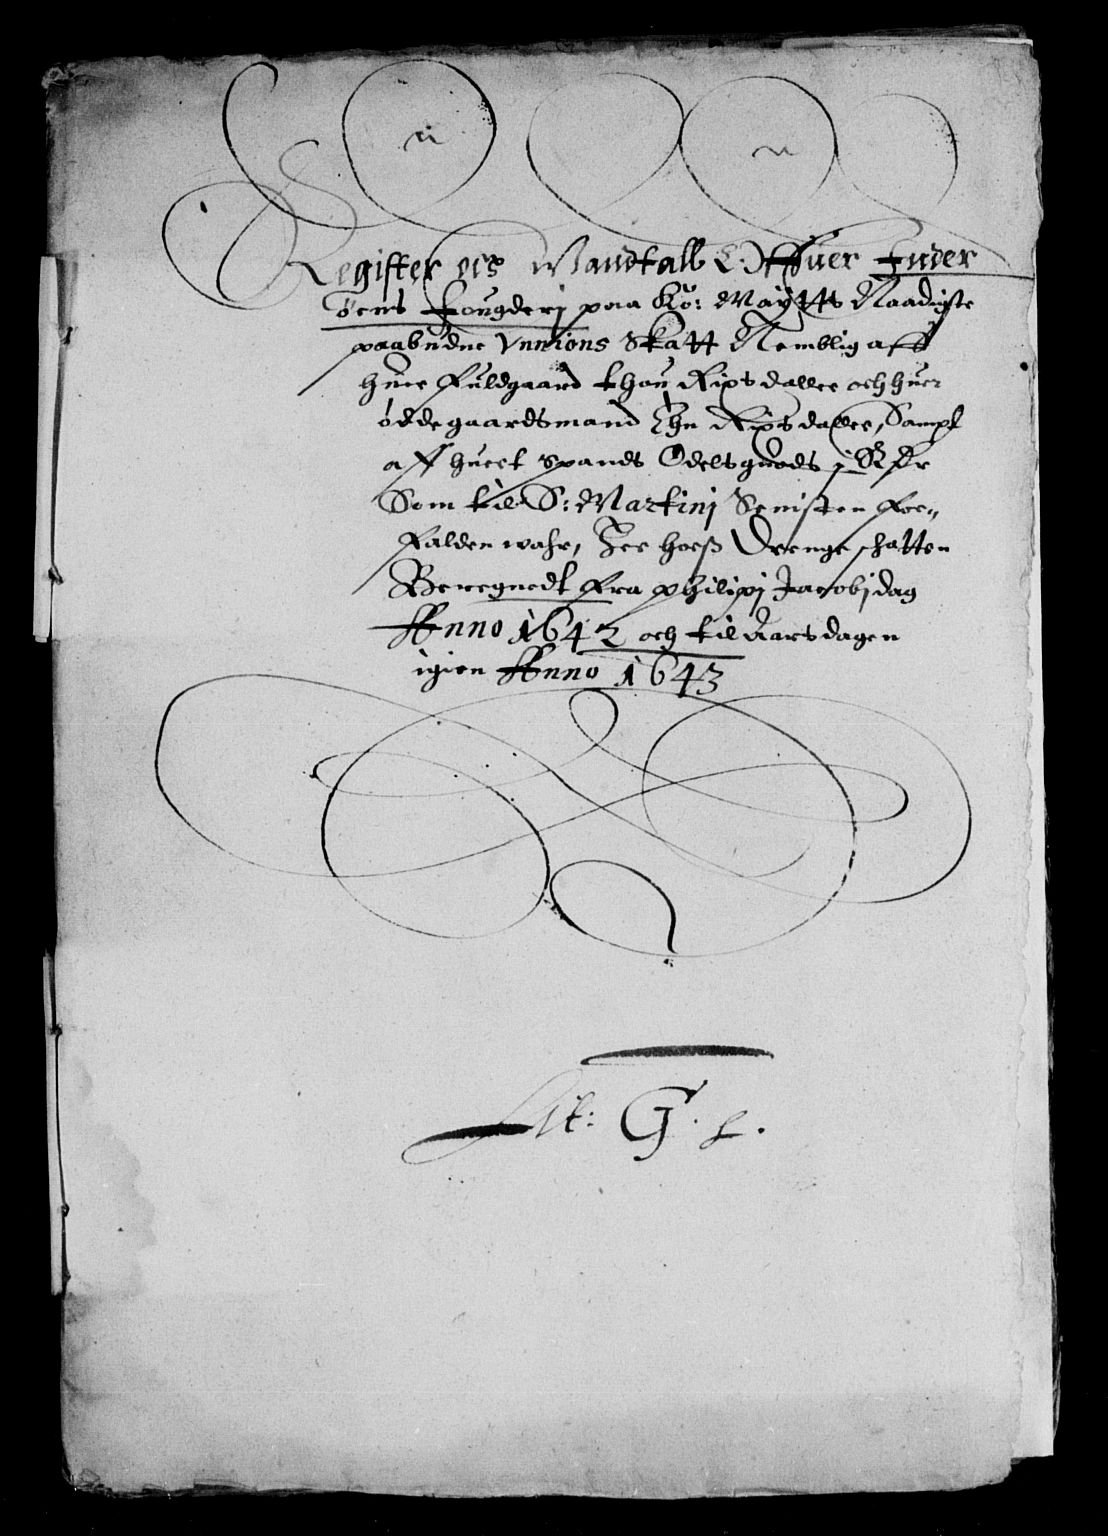 Register oc Mandtall Offuer Inder
öens fougderj paa Kö: Maÿtts Naadigste
paabudne Vnnions Skatt Nemblig aff
huer Fuldgaard thou Rixsdaller och huer
ödegaardsmand Ehn Rixsdaller, Sampt
aff huert Spands Odelsguods j Rdr
Som til S: Martinj Senisten for„
falden wahr, Dreng schatten
Beregnedt fra philipi Jacobj dag
Anno 1642 och til Aarsdagen
igien Anno 1643
Lit: G.